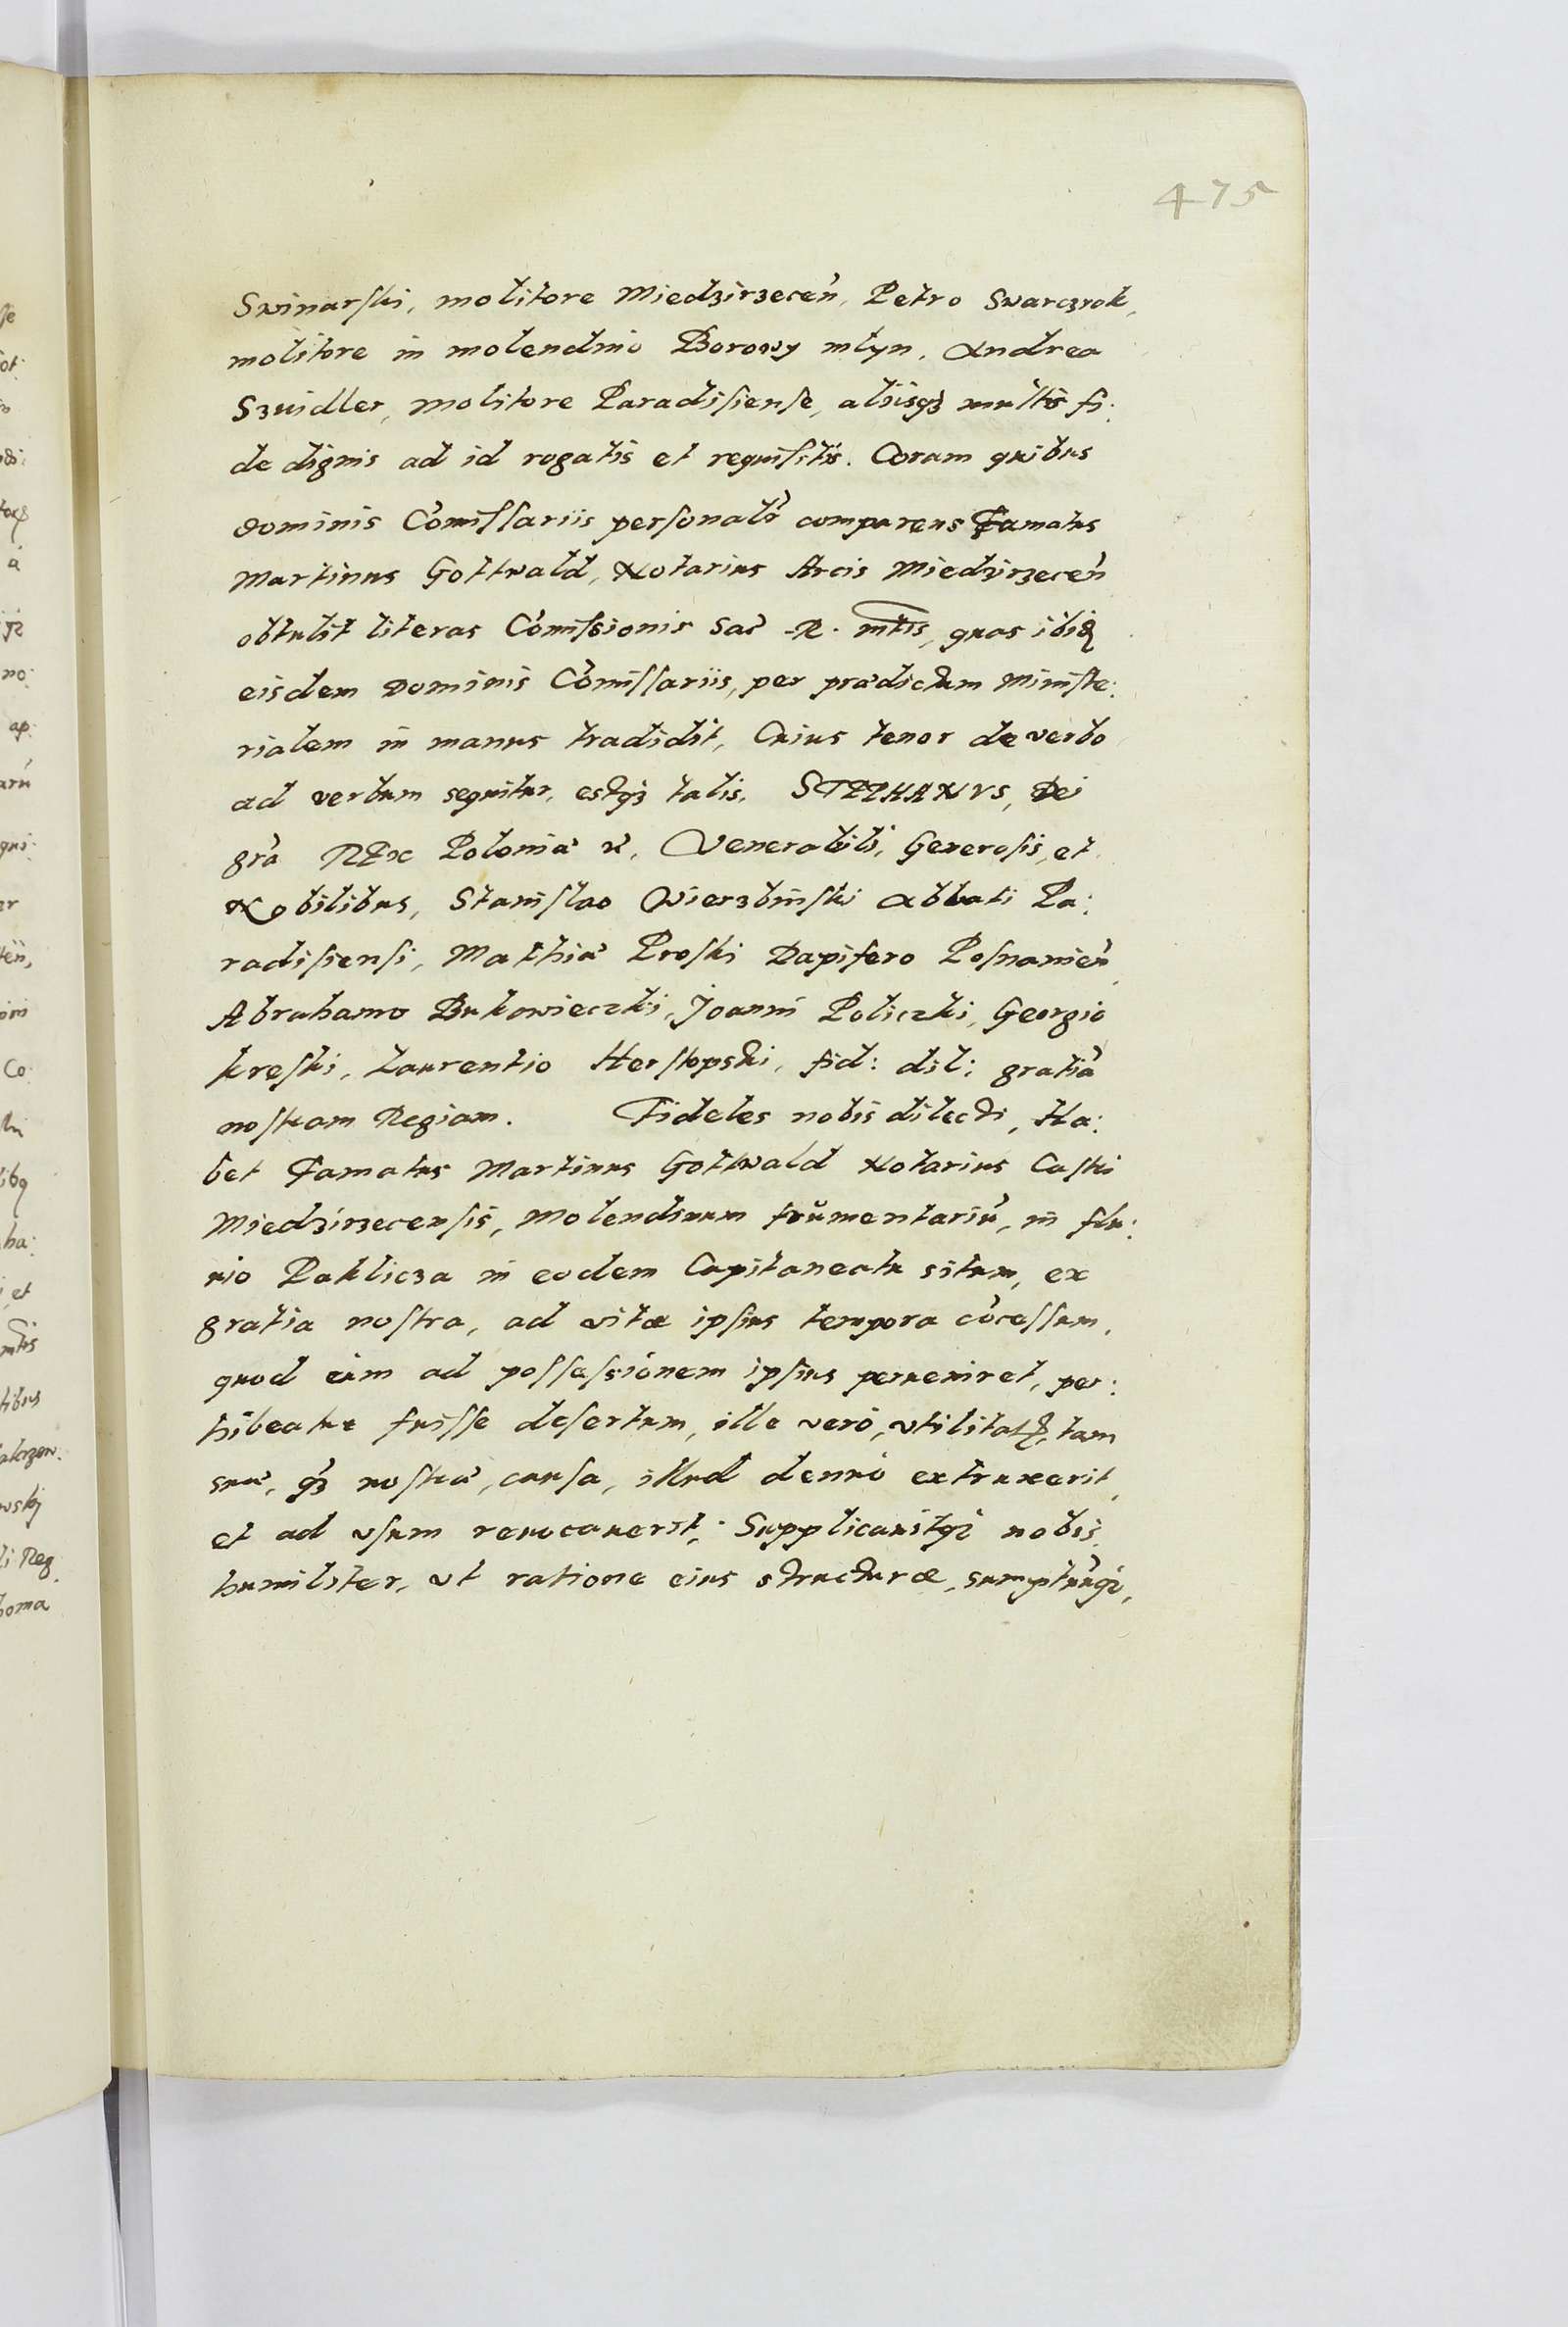 475
Swinarſki, molitore Miedzirzecen̄, Petro Swarczrok,
molitore in molendino Borowy mlyn, Andrea
Szuidler, molitore Paradiſienſe, aliisqꝫ multis fi:
de dignis ad id rogatis et requiſitis. Coram quibus
dominis Com̄iſſariis perſonalr̄ comparens Famatus
Martinus Gottwald, Notarius Arcis Miedzirzecen̄
obtulit literas Com̄iſsionis Sac̄ R. mtis, quas ibid
eisdem Dominis Com̄iſſariis, per prædictum Miniſte:
rialem in manus tradidit, Cuius tenor de verbo
ad verbum sequitur, estqꝫ talis. STEPHANVS, Dei
gr̄a REX Poloniæ &, Venerabili, Generoſis, et
Nobilibus, Staniſlao Wierzbinſki Abbati Pa:
radiſienſi, Mathiæ Proſki Dapifero Poſnanien̄,
Abrahamo Bukowieczki, Joanni Policzki, Georgio
Kreſki, Laurentio Herſtopski, fid: dil: gratiā
noſtram Regiam. Fideles nobis dilecti, Ha:
bet Famatus Martinus Gottwald Notarius Caſtri
Miedzirzecenſis, Molendinum frŭmentariū, in flu:
uio Paklicza in eodem Capitaneatu situm, ex
gratia noſtra, ad vitæ ipſius tempora cōceſſum,
quod cùm ad poſſeſsionem ipſius perueniret, per:
hibeatur fuiſſe deſertum, ille verò, vtilitatꝭ, tam
suæ, qꝫ noſtræ, cauſa, illud denuò extruxerit,
et ad vſum reuocauerit, Supplicauitqꝫ nobis
humiliter, vt ratione eius structuræ, sumptūqꝫ,